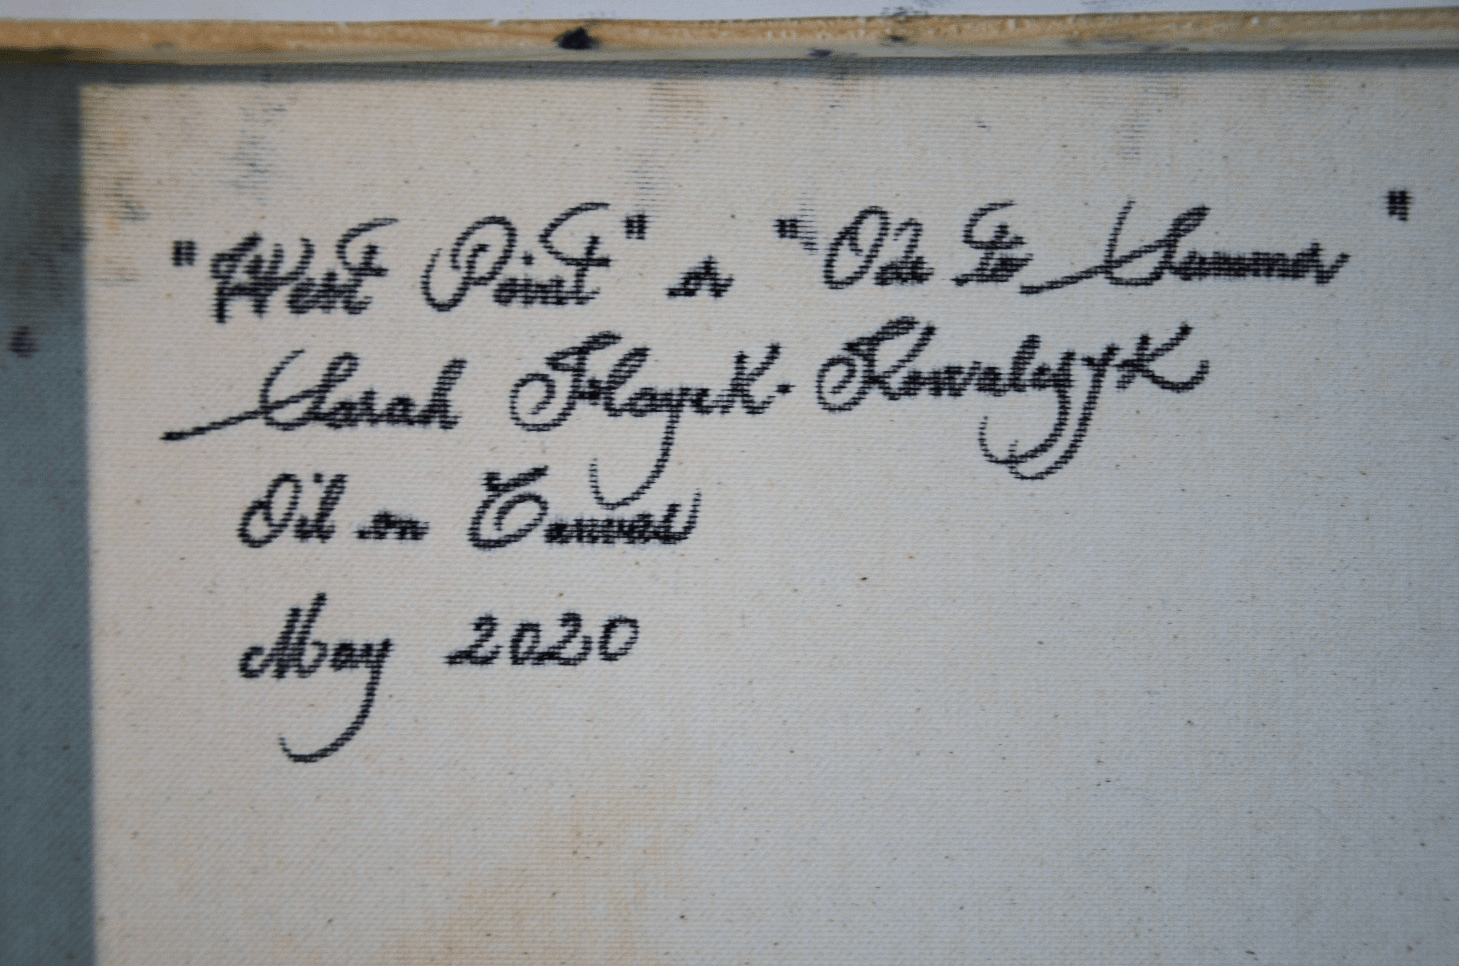 "West Point" or "Ode To Summer"
Sarah Hayek-Kowalczyk
Oil on Canvas
May 2020